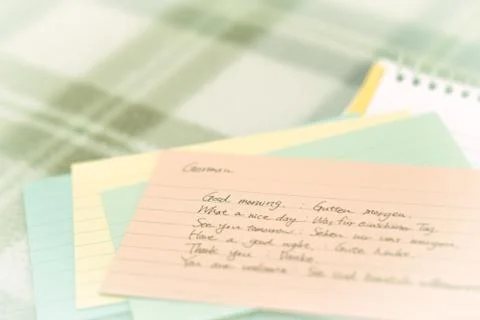 German
Good morning. : Gutten morgen.
What a nice day : Was für ein schöner Tag.
See you tomorrow : Sehen wir uns morgen.
Have a good night. : Gute
Thank you : Danke.
You are welcome : Sie sind